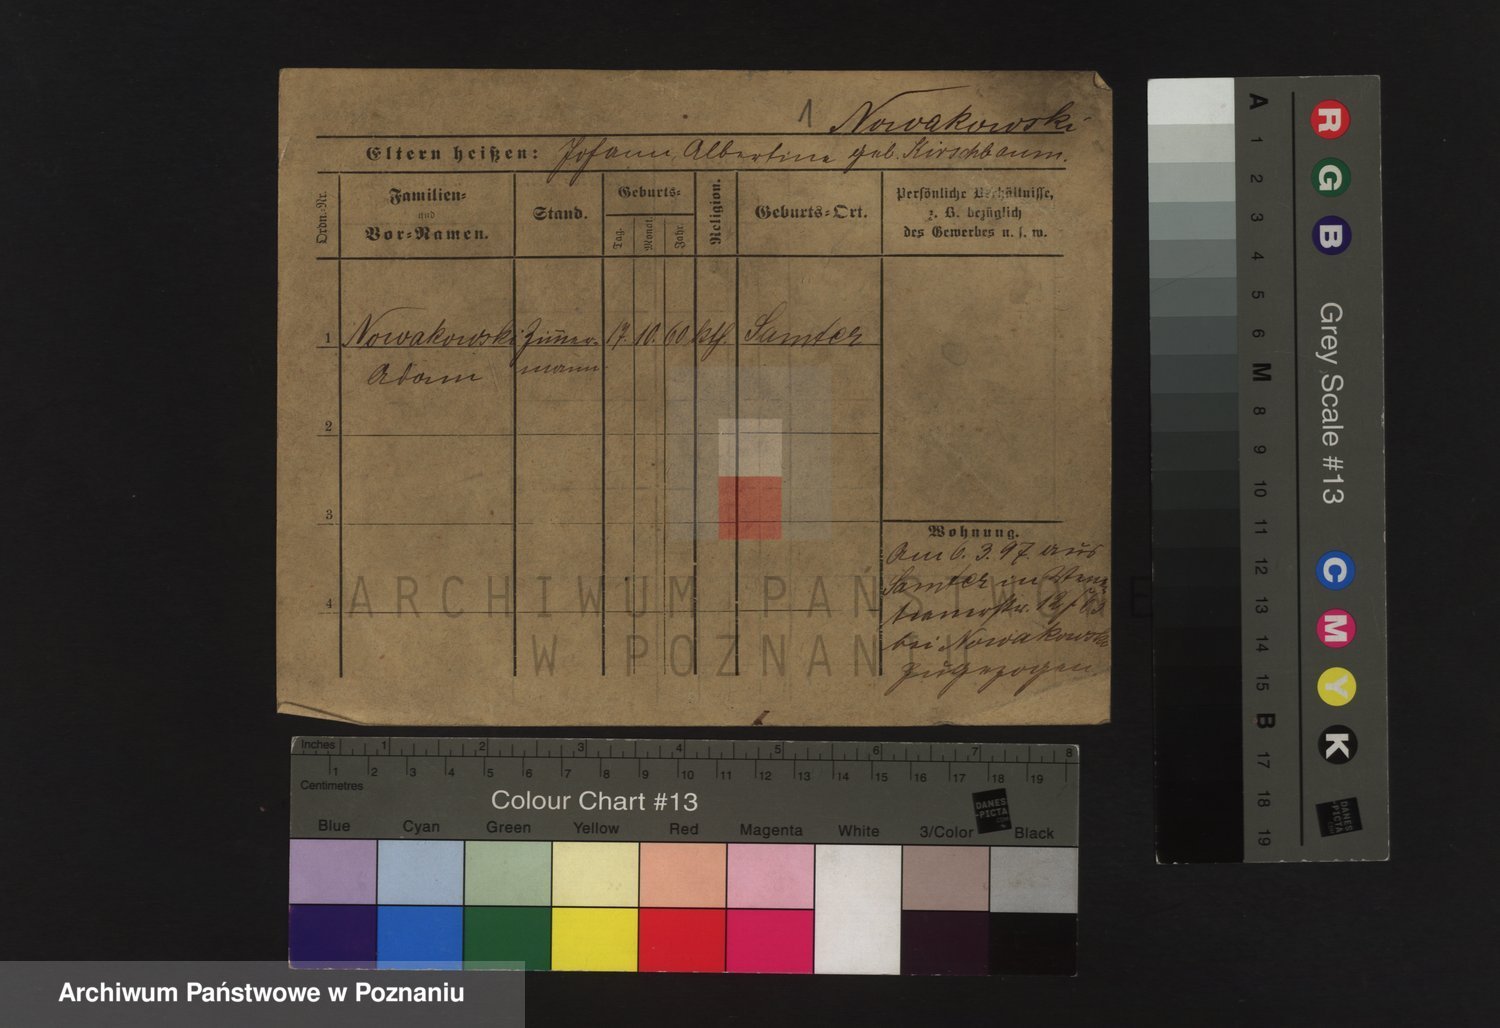 1 Nowakowski
Eltern heißen: Johann, Albertine geb. Kirschbaum.
Ordn.-Nr.
Familien-
und
Vor-Namen.
Stand.
Geburts-
Tag.
Monat.
Jahr.
Religion.
Geburts-Ort.
Persönliche Verhältnisse,
z. B. bezüglich
des Gewerbes u. s. w.
1 Nowakowski Zimmer- 17. 10. 60 kth. Samter
Adam mann
2
3
4
Wohnung.
Am 6. 3. 97 aus
Samter in
12/
bei Nowakowski
zugezogen
ARCHIWUM PAŃSTWOWE
W POZNANIU
Inches 1 2 3 4 5 6 7 8
1 2 3 4 5 6 7 8 9 10 11 12 13 14 15 16 17 18 19
Centimetres
Colour Chart #13
DANES
-PICTA
Blue Cyan Green Yellow Red Magenta White 3/Color Black
A 1 2 3 4 5 6 M 8 9 10 11 12 13 14 15 B 17 18 19
R G B
Grey Scale #13
C M Y K
DANES
-PICTA
Archiwum Państwowe w Poznaniu